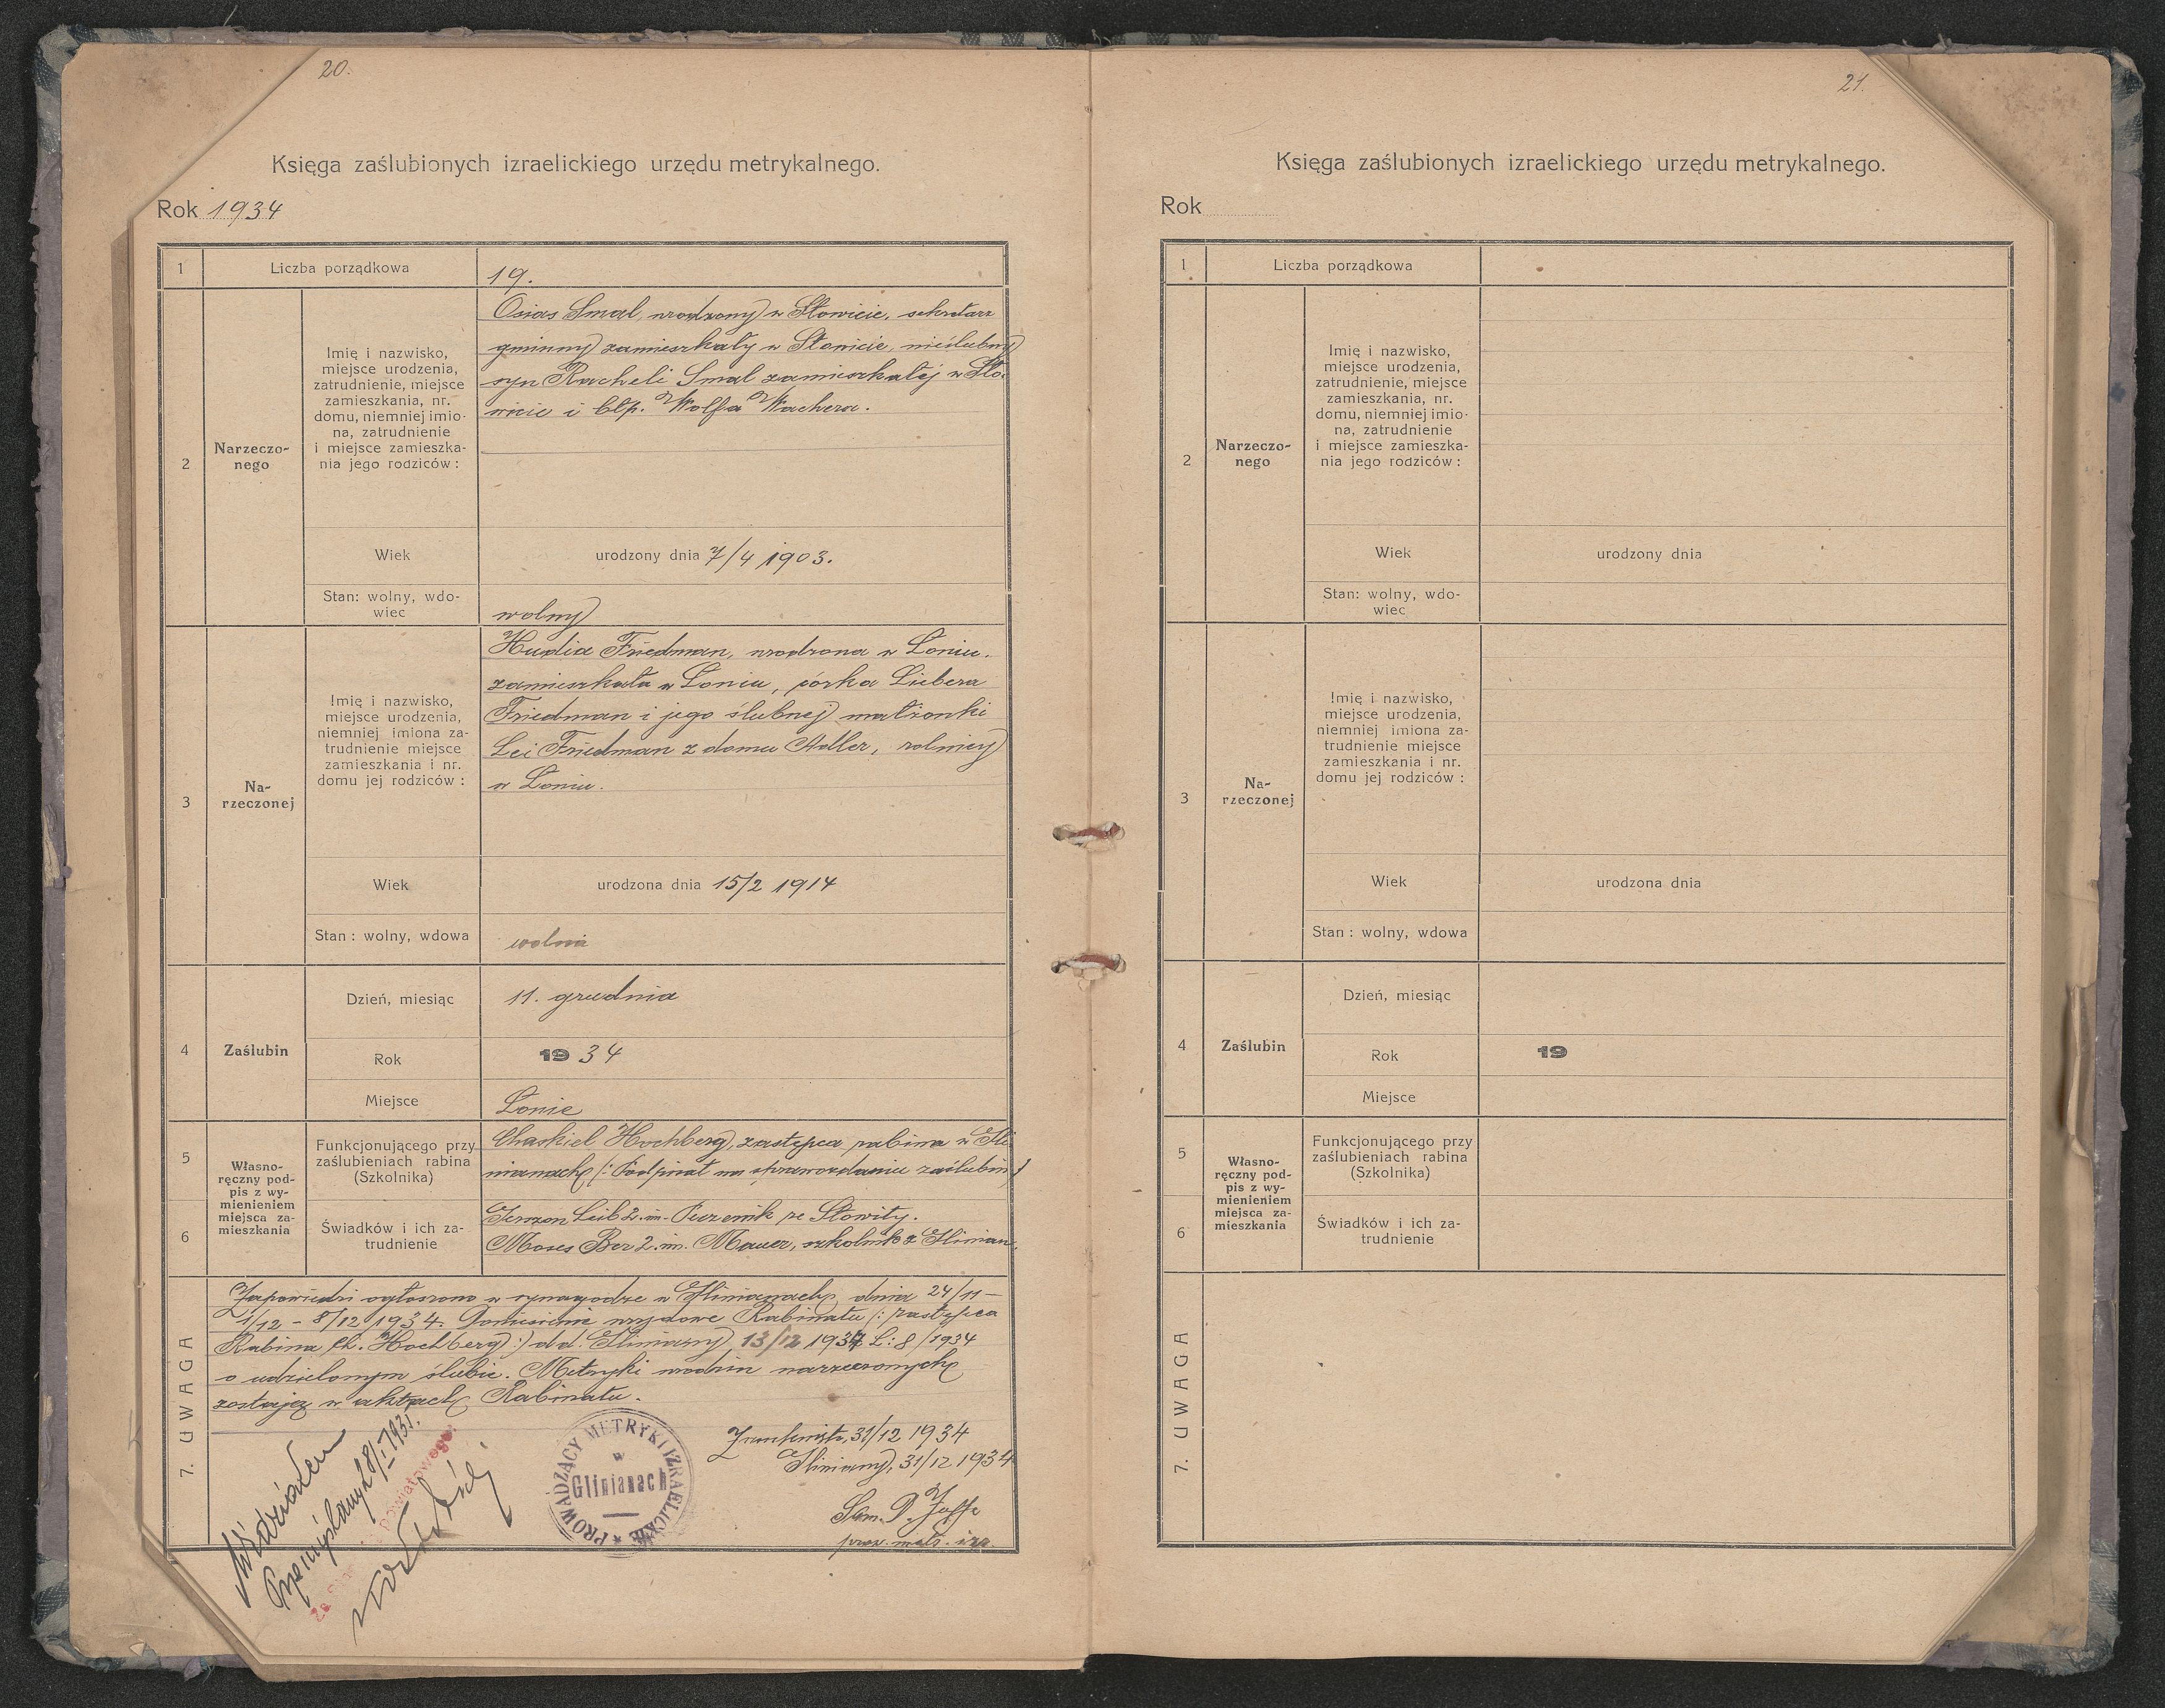 20.
Księga zaślubionych izraelickiego urzędu metrykalnego.
Rok 1934
1 Liczba porządkowa 19.
2 Narzeczo-
nego
Imię i nazwisko,
miejsce urodzenia,
zatrudnienie, miejsce
zamieszkania, nr.
domu, niemniej imio-
na, zatrudnienie
i miejsce zamieszka-
nia jego rodziców:
Osias Smal, urodzony w Słowicie, sekretarz
gminny zamieszkały w Słowicie, nieślubny
syn Racheli Smal zamieszkałej w Sło-
wicie i błp. Wolfa Wachera.
Wiek urodzony dnia 7/4 1903.
Stan: wolny, wdo-
wiec
wolny
3 Na-
rzeczonej
Imię i nazwisko,
miejsce urodzenia,
niemniej imiona za-
trudnienie miejsce
zamieszkania i nr.
domu jej rodziców:
Hudia Friedman, urodzona w Łoniu.
zamieszkała w Łoniu, córka Liebera
Friedman i jego ślubnej małżonki
Lei Friedman z domu Adler, rolnicy
w Łoniu.
Wiek urodzona dnia 15/2 1914
Stan: wolny, wdowa wolna
4 Zaślubin
Dzień, miesiąc 11. grudnia
Rok 1934
Miejsce Łonie
5
6
Własno-
ręczny pod-
pis z wy-
mienieniem
miejsca za-
mieszkania
Funkcjonującego przy
zaślubieniach rabina
(Szkolnika)
Chaskiel Hochberg, zastępca rabina w Gli-
nianach (: Podpisał na sprawozdaniu zaślubin:)
Świadków i ich za-
trudnienie
Leib 2. im. ze Słowity.
Moses Ber 2. im. Mauer, szkolnik z Glinian.
7. UWAGA
Zapowiedzi ogłoszono w synagodze w Glinianach dnia 24/11 –
1/12 – 8/12 1934. Doniesienie urzędowe Rabinatu (: zastępca
Rabina Ch. Hochberg :) dd. Gliniany 13/12 1934 L: 8/1934
o udzielonym ślubie. Metryki urodzin narzeczonych
zostają w aktach Rabinatu.
31/12 1934
Gliniany, 31/12 1934
Sam. P. Jaffe
prow. metr. izr.
PROWADZĄCY METRYKI IZRAELICKIE
w
Glinianach
Widziałem
Przemyślany 28/I 1935.
Powiatowego:
21.
Księga zaślubionych izraelickiego urzędu metrykalnego.
Rok
1 Liczba porządkowa
2 Narzeczo-
nego
Imię i nazwisko,
miejsce urodzenia,
zatrudnienie, miejsce
zamieszkania, nr.
domu, niemniej imio-
na, zatrudnienie
i miejsce zamieszka-
nia jego rodziców:
Wiek urodzony dnia
Stan: wolny, wdo-
wiec
3 Na-
rzeczonej
Imię i nazwisko,
miejsce urodzenia,
niemniej imiona za-
trudnienie miejsce
zamieszkania i nr.
domu jej rodziców:
Wiek urodzona dnia
Stan: wolny, wdowa
4 Zaślubin
Dzień, miesiąc
Rok 19
Miejsce
5
6
Własno-
ręczny pod-
pis z wy-
mienieniem
miejsca za-
mieszkania
Funkcjonującego przy
zaślubieniach rabina
(Szkolnika)
Świadków i ich za-
trudnienie
7. UWAGA